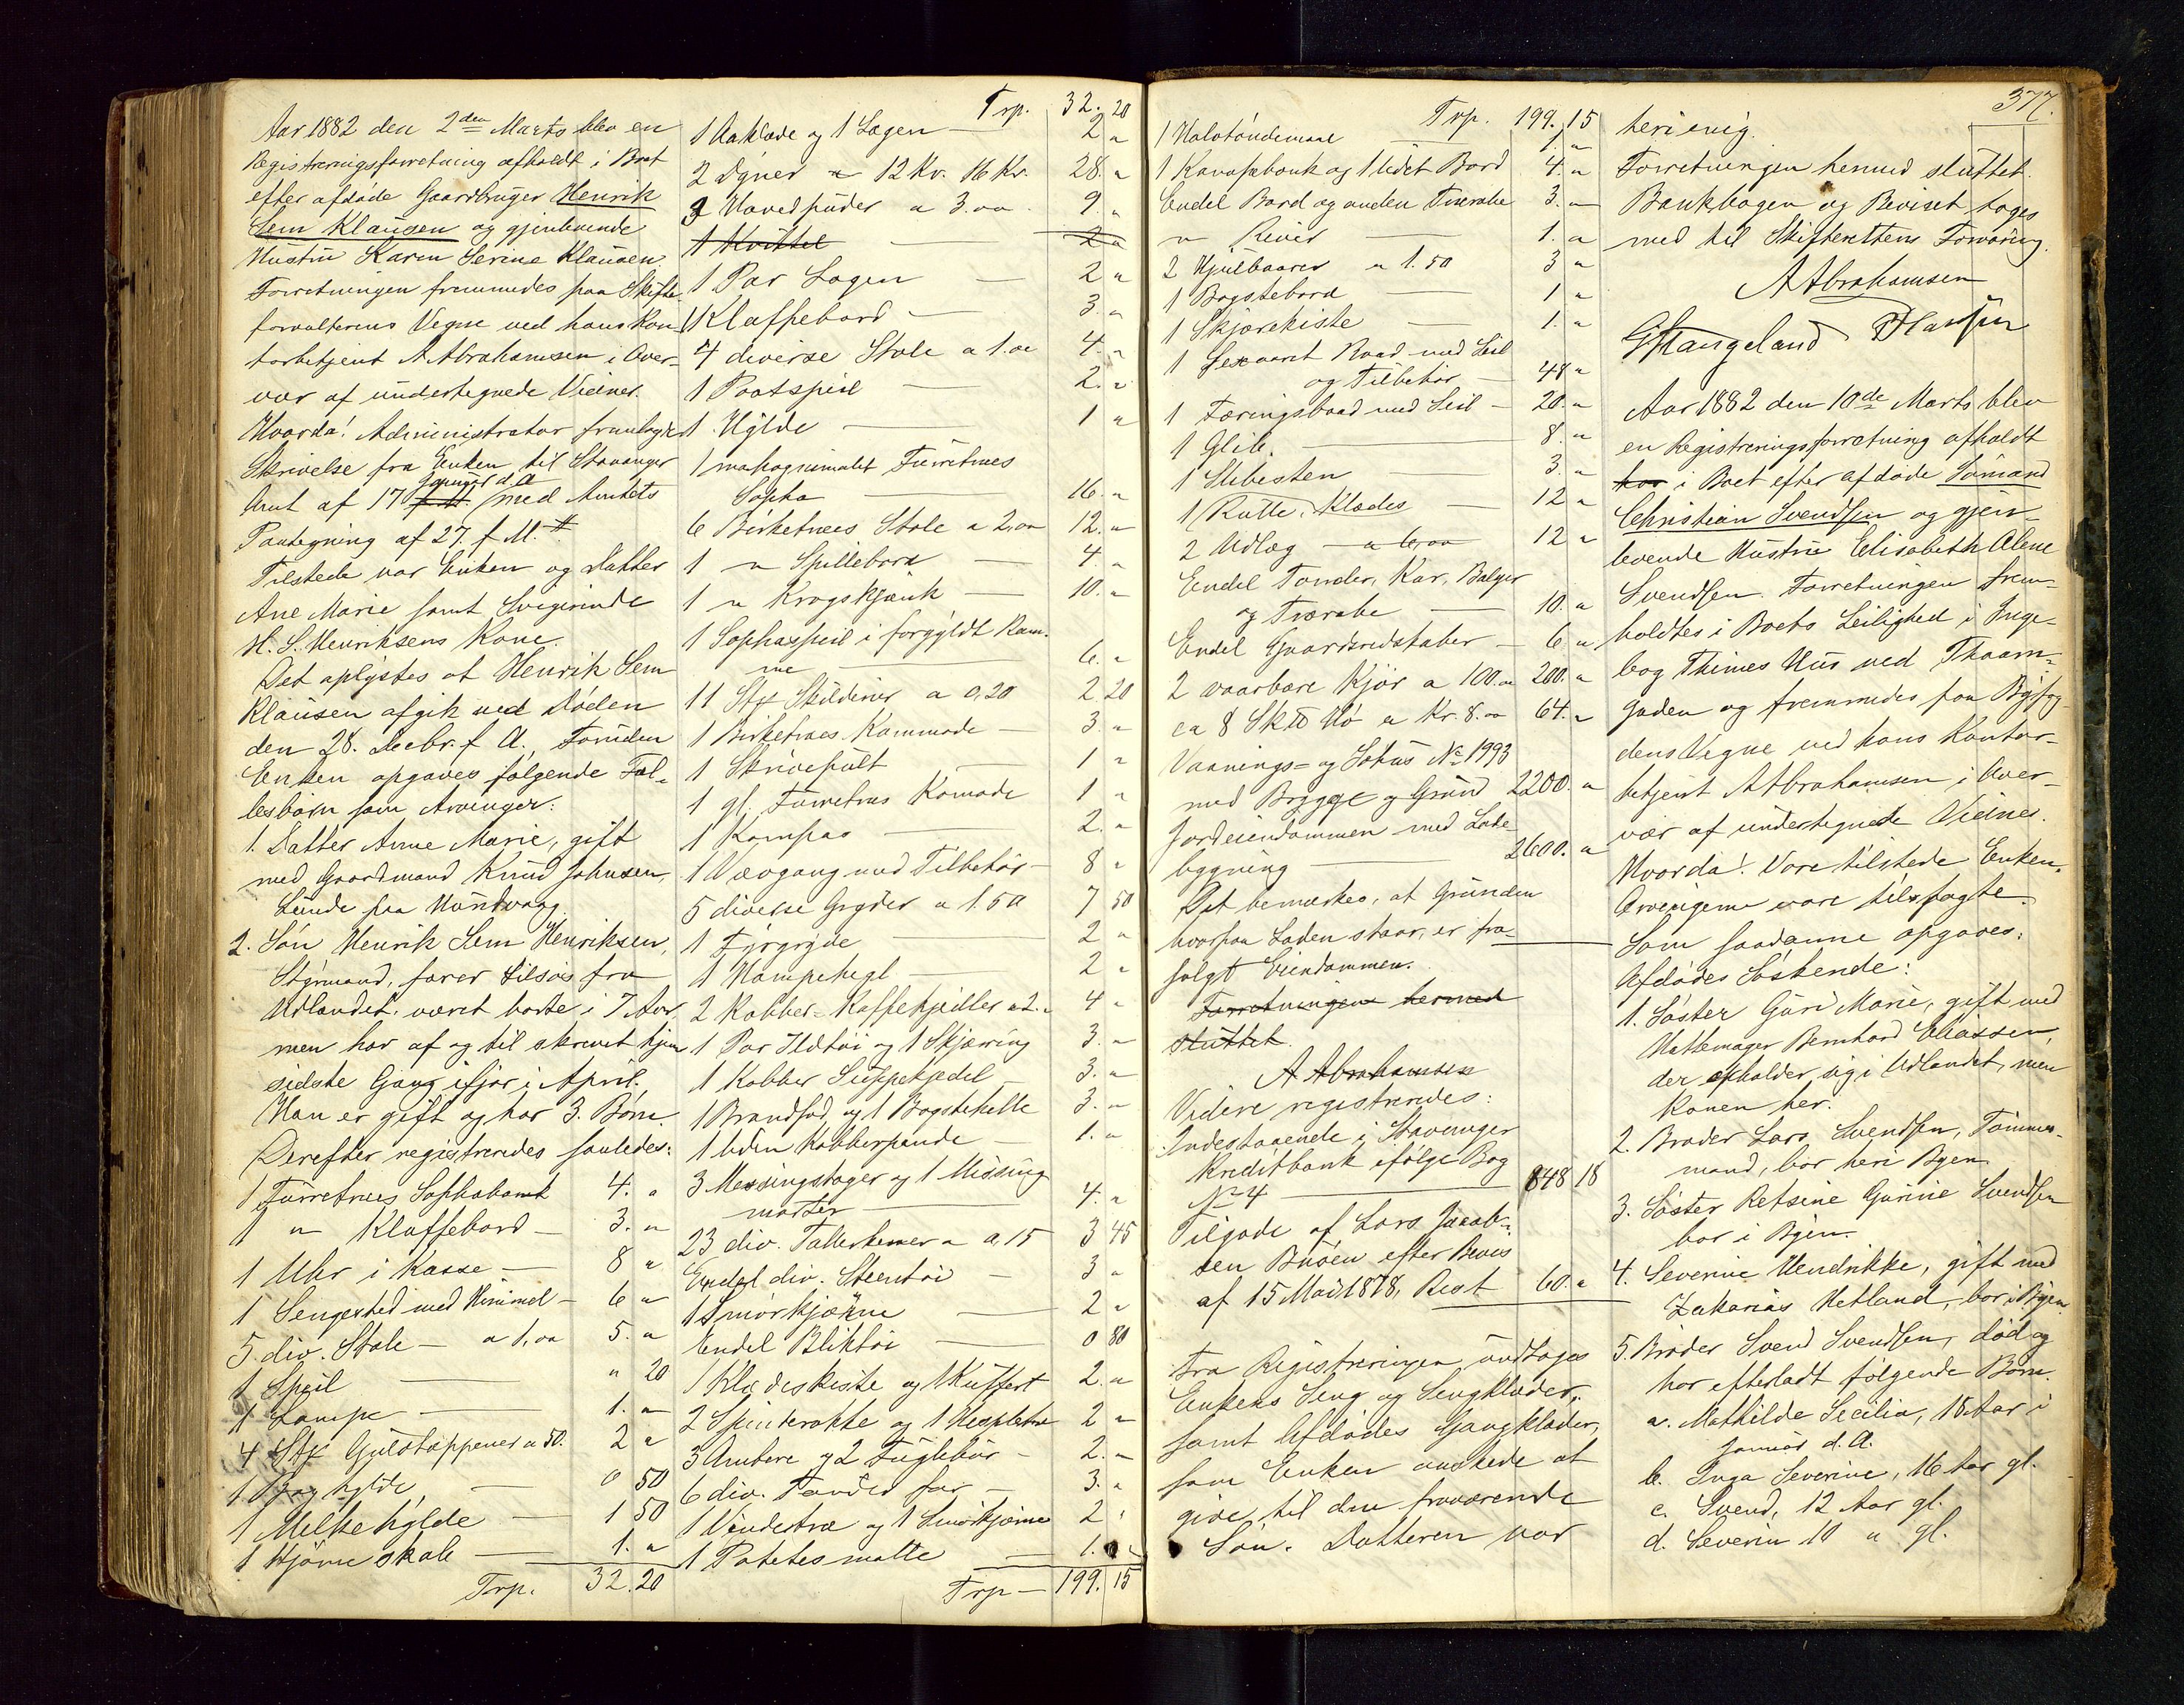 Aar 1882 den 2den Marts blev en
Registreringsforretning afholdt i Boet
efter afdøde Gaardbruger Henrik
Sem Klausen og gjenlevende
Hustru Karen Serine Klausen.
Forretningen fremmedes paa Skifte-
forvalterens Vegne ved hans Kon-
torbetjent A. Abrahamsen i Over-
vær af undertegnede Vidner.
Hvorda! Administrator fremlagdes
Skrivelse fra Enken til Stavanger
Januar d. A.
Amt af 17 f. M. med Amtets
Paategning af 27. f. M.
Tilstede var Enken og Datter
Ane Marie samt Svigerinde
H. S. Henriksens Kone.
Det oplystes at Henrik Sem
Klausen afgik ved Døden
den 28. Decbr. f. A. Foruden
Enken opgaves følgende Fæl-
lesbørn som Arvinger:
1. Datter Anne Marie, gift
med Gaardmand Knud Johnsen,
Lunde paa Hundvaag
2. Søn Henrik Sem Henriksen,
Styrmand, farer tilsøs fra
Udlandet, været borte i 7 Aar,
men har af og til skrevet hjem
sidste Gang ifjor i April.
Han er gift og har 3. Børn.
Derefter registreredes saaledes:
1 Furretræes Sophabænk 4. "
1 " Klaffebord – 3. "
1 Uhr i Kasse – 8 "
1 Sengested med Himmel – 6 "
5 div. Stole – a 1,00 5. "
1 Speil " 20
1 Lampe 1. "
4 Stk Gulvtæppener a 50. 2 "
1 Hylde 0 50
1 Melke hylde 1 50
1 Hjørne skab 1. "
Trp. 32.20
Trp. 32. 20
1 Aaklæde og 1 Lagen – 2 "
2 Dyner " 12 Kr. 16 Kr. 28. "
3 Hovedpuder a 3.00 9. "
1 Kvittel 2 "
1 Par Lagen – 2 "
1 Klaffebord – 3. "
4 diverse Stole a 1.00 4. "
1 Pootspeil 2. "
1 Hylde 1 "
1 mahognimalet Furretræes
Sopha 16. "
6 Birketræes Stole a 2.00 12. "
1 " Spillebord 4. "
1 " Krogskjænk – 10. "
1 Sophaspeil i forgyldt Ram-
me 6. "
11 Stk Skilderier a 0,20 2 20
1 Birketræes Kommode – 3. "
1 Skrivepult 1 "
1 gl. Furretræs Komode 1 "
1 Kompas 2. "
1 Vævgang med Tilbehør – 8 "
5 diverse Gryder a 1.50 7 50
1 Tjrgryde 2 "
1 Hampehegl 2 "
2 Kobber-Kaffekjedler a 2. " 4 "
1 Par Ildtøi og 1 Skjæring 3. "
1 Kobber Suppekjedel – 3. "
1 Brandfad og 1 Bagstehelle 3. "
1 liden Kobberpande – 1. "
3 Messingstager og 1 Missing
morter 4. "
23 div. Tallerkener " a 15 3 45
Endel div. Steentøi – 3 "
1 Smørkjærne 2 "
Endel Bliktøi 0 80
1 Klædeskiste og 1 Kuffert 2. "
2 Spinderokke og 1 Hespletræ 2 "
3 Ambere og 2 Fuglebur – 2. "
6 div. Tønder for – 3. "
1 Vindetræ og 1 Smørkjærne 2 "
1 Potetesmatte 1. "
Trp – 199. 15
Trp. 199. 15
1 Halvtøndemaal 1. "
1 Kanapebænk og 1 lidet Bord 4. "
Endel Bord og anden Trærabe 3. "
" River 1. "
2 Hjulbaarer a 1.50 3 "
1 Bagstebord 1 "
1 Skjærekiste 1. "
1 Sexaaret Baad med Seil
og Tilbehør – 48 "
1 Færingsbaad med Seil – 20. "
1 Glib. 8. "
1 Slibesten 3. "
1 Rulle, Klædes 12 "
2 Udlæg a 6,00 12 "
Endel Tønder, Kar, Balger
og Trærabe 10. "
Endel Gaardsredskaber – 6 "
2 vaarbære Kjør a 100.00 200. "
ca 8 Sk℔ Hø a Kr. 8.00 64. "
Vaanings- og Søhus No 1993
med Brygge og Grund 2200. "
Jordeiendommen med Lade-
bygning 2600. "
Det bemærkes, at Grunden
hvorpaa Laden staar, er fra-
solgt Eiendommen.
Forretningen hermed
sluttet.
A Abrahamsen
Videre registreredes:
Indestaaende i Stavanger
Kreditbank ifølge Bog
No 4 848 18
Tilgode af Lars Jacob-
sen Buøen efter Bevis
af 15 Mai 1878, Rest 60. "
Fra Registreringen undtoges
Enkens Seng og Sengklæder,
samt Afdødes Gangklæder,
som Enken ønskede at
give til den fraværende
Søn. Datteren var
377.
heri enig.
Forretningen hermed sluttet.
Bankbogen og Beviset toges
med til Skifterettens Forvaring.
A Abrahamsen
G Hangeland Hansen
Aar 1882 den 10de Marts blev
en Registreringsforretning afholdt
hos i Boet efter afdøde Sømand
Christian Svendsen og gjen-
levende Hustru Elisabeth Alene
Svendsen. Forretningen frem-
holdtes i Boets Leilighed i Inge-
borg Thimes Hus ved Thaarn-
gaden og fremmedes paa Byfog-
dens Vegne ved hans Kontor-
betjent A Abrahamsen i Over-
vær af undertegnede Vidner.
Hvorda! Vare tilstede Enken.
Arvingerne vare tilsagte.
Som saadanne opgaves:
Afdødes Søskende:
1. Søster Guri Marie, gift med
Hattemager Bernhard Eliassen,
der opholder sig i Udlandet, men
Konen her.
2. Broder Lars Svendsen, Tømmer-
mand, bor heri Byen
3. Søster Retsine Gurine Svendsen
bor i Byen.
4. Severine Hendrikke, gift med
Zakarias Hetland, bor i Byen.
5. Broder Svend Svendsen, død og
har efterladt følgende Børn.
a. Mathilde Secilia, 18 Aar i
Januar d. A.
b. Inga Severine, 16 Aar gl.
c. Svend, 12 Aar gl.
d. Severin 10 " gl.